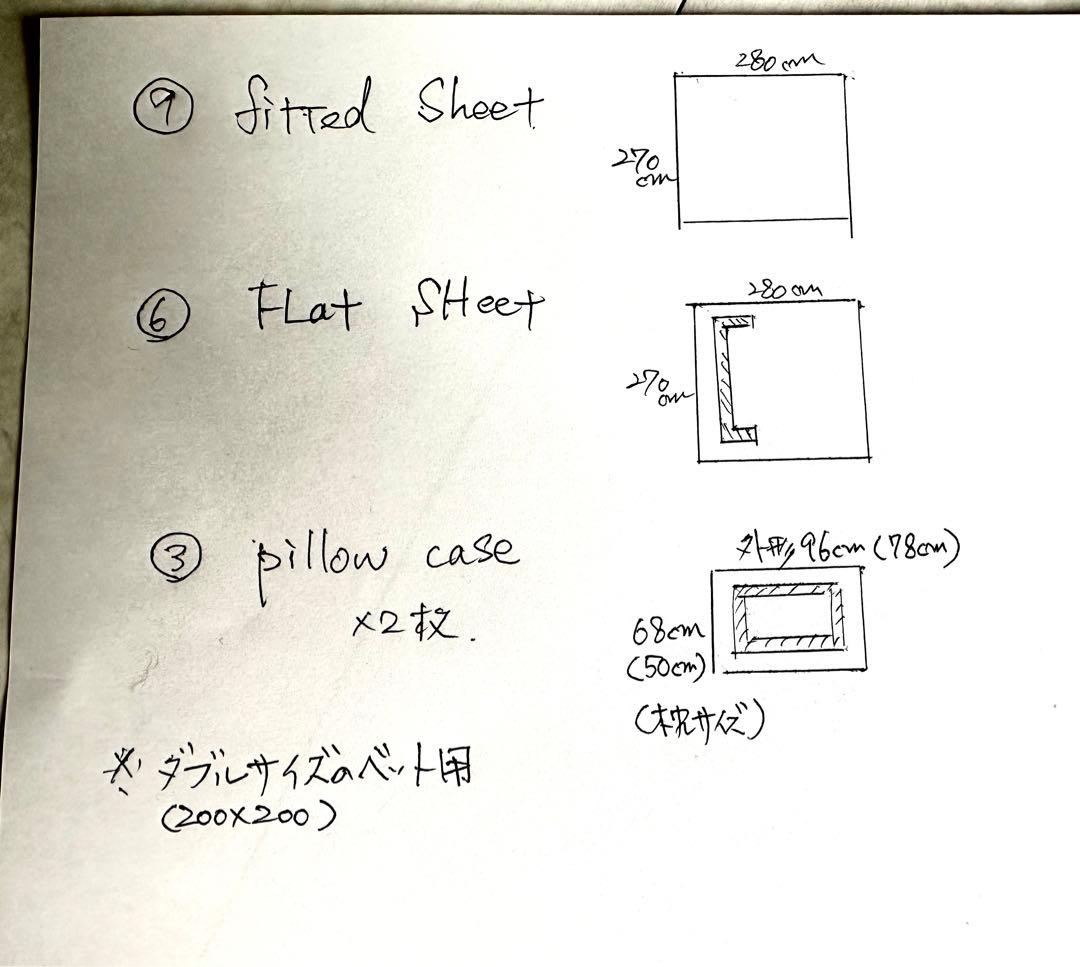 ⑨ fitted Sheet
280cm
270
cm
⑥ FLat SHeet
280cm
270
cm
③ pillow case
×2枚.
外形 96cm (78cm)
68cm
(50cm)
(枕サイズ)
※ ダブルサイズのベット用
(200×200)